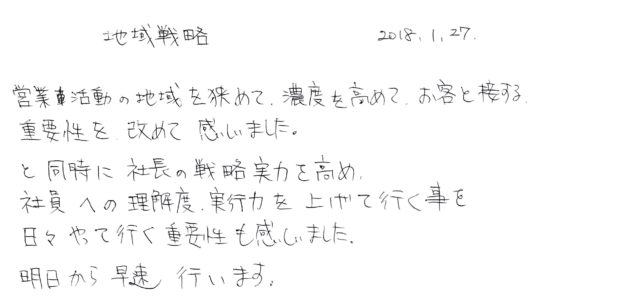 地域戦略 2018.1.27.
営業活動の地域を狭めて、濃度を高めて、お客と接する
重要性を、改めて感じました。
と同時に社長の戦略実力を高め、
社員への理解度、実行力を上げて行く事を
日々やって行く重要性も感じました。
明日から早速行います。